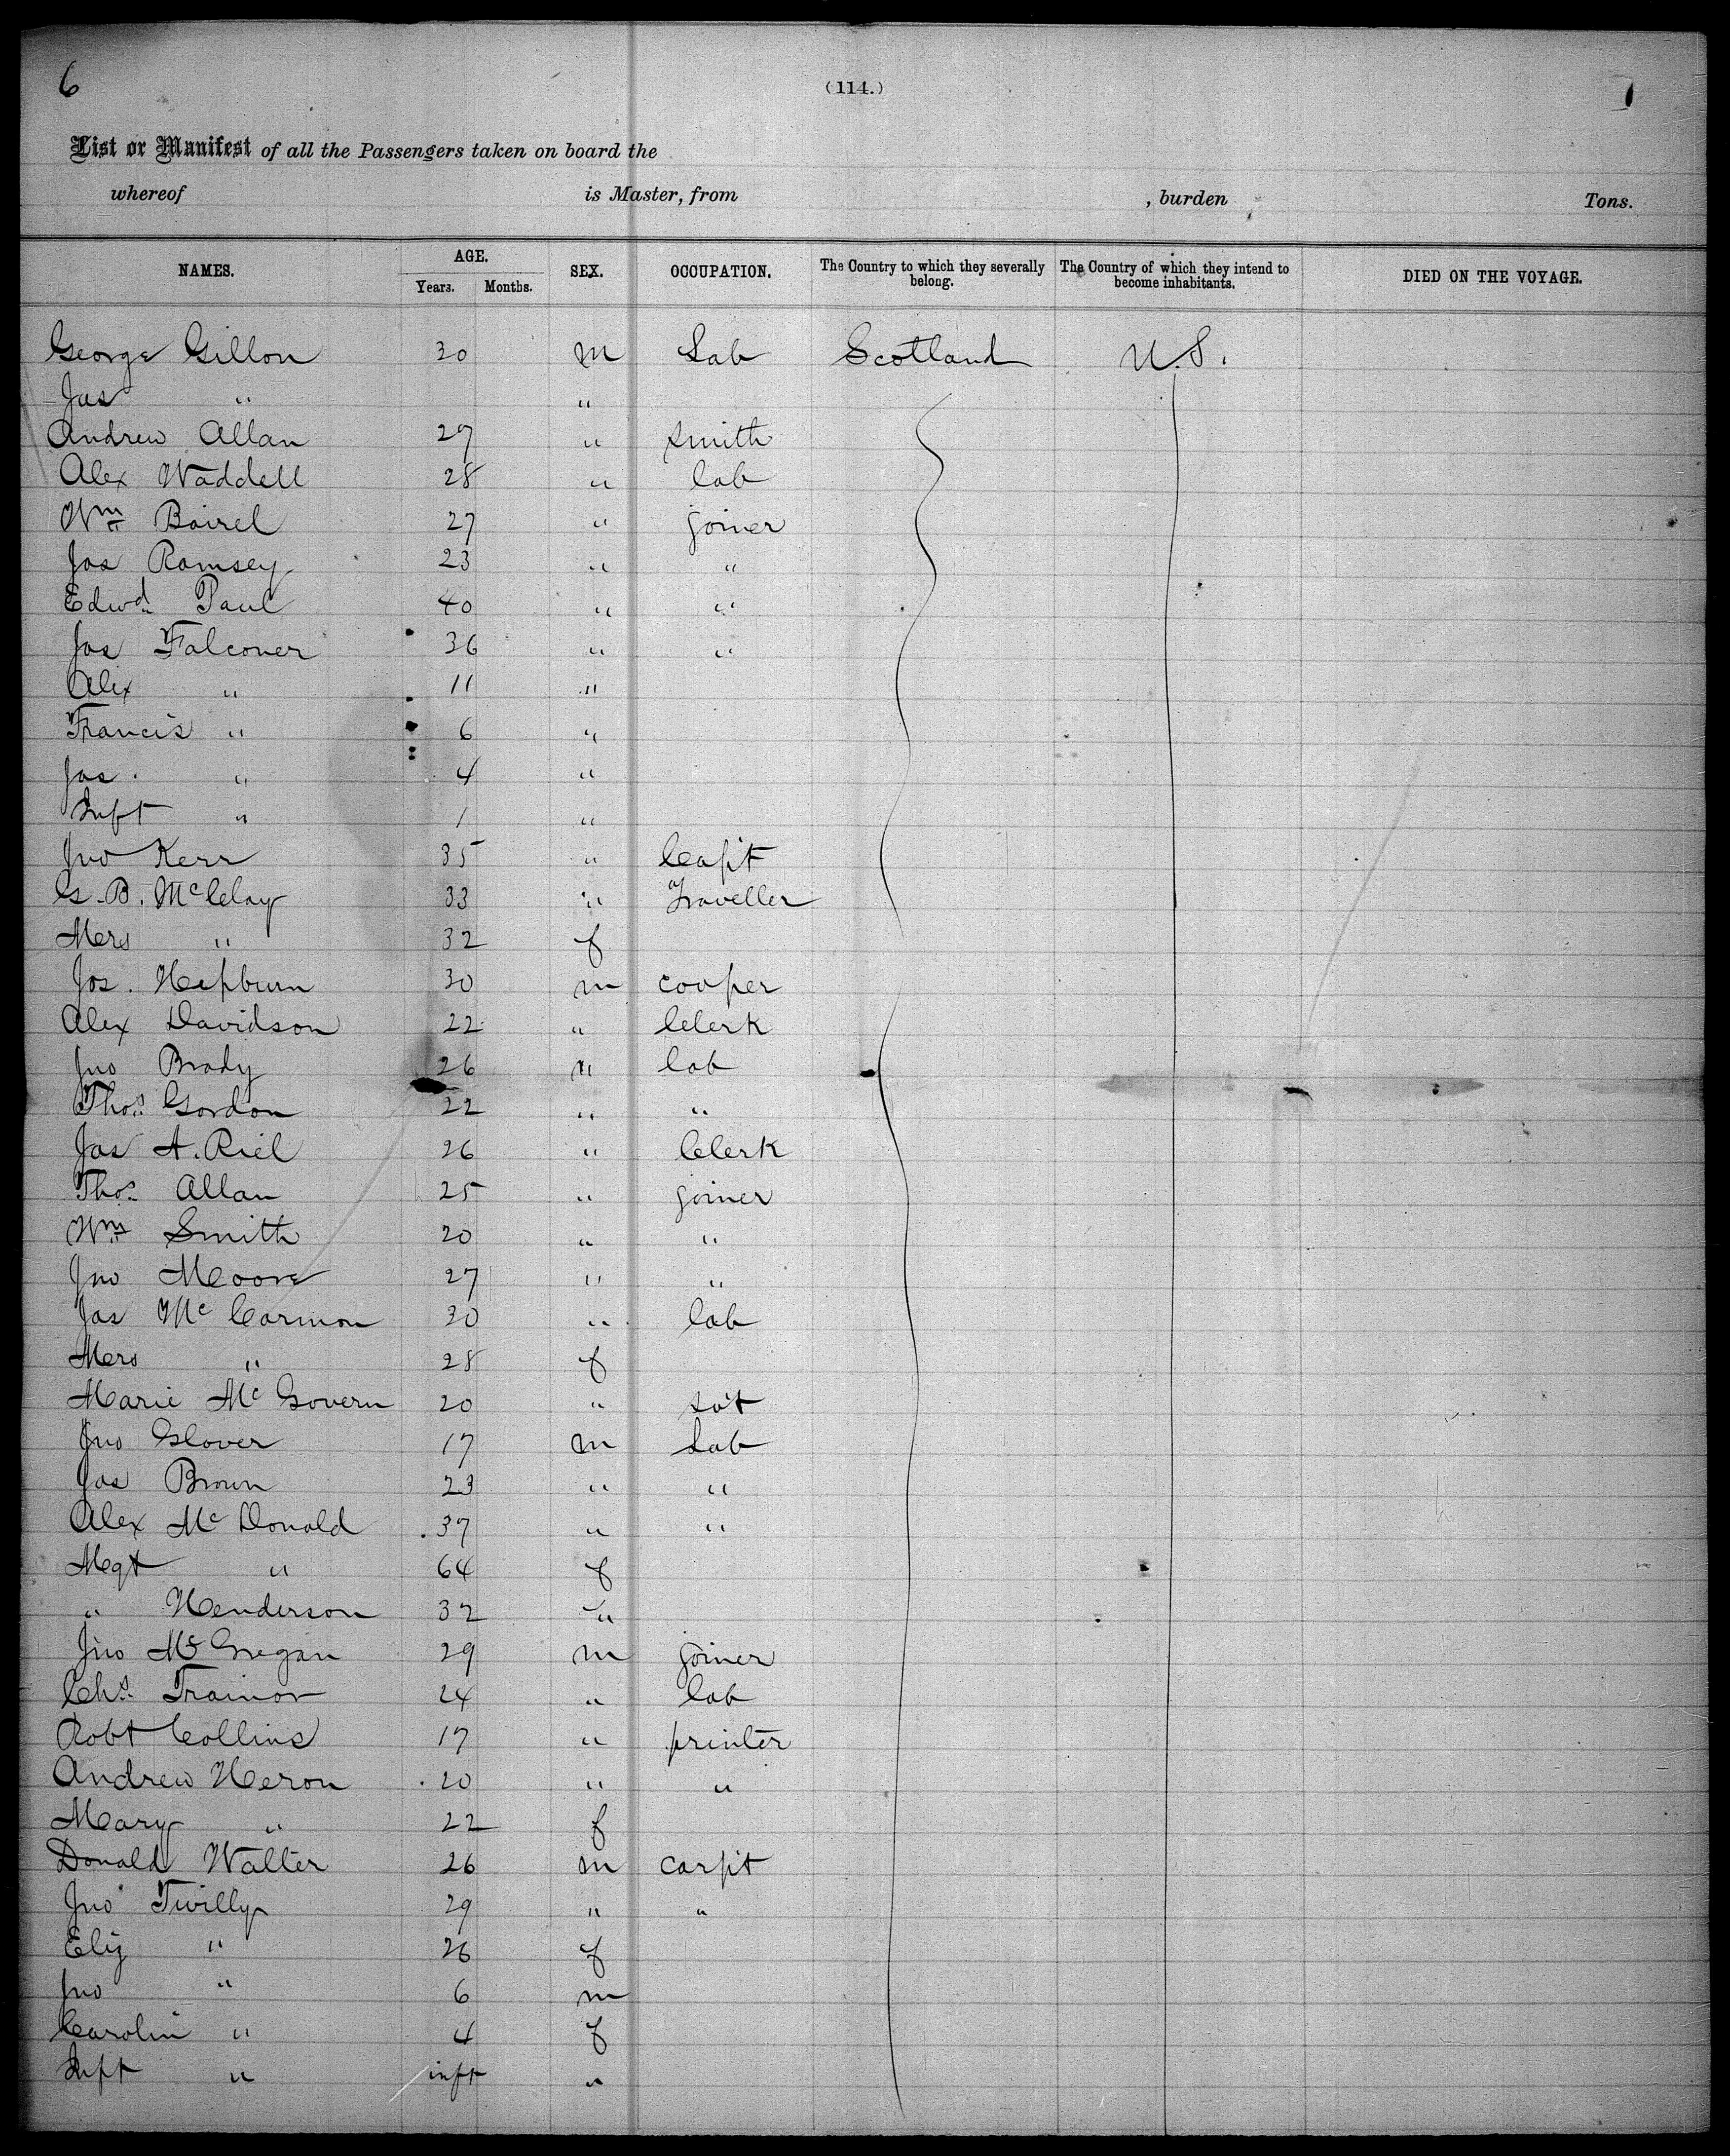 6 (114.) 1
List or Manifest of all the Passengers taken on board the
whereof is Master, from , burden Tons.
NAMES. AGE. Years. Months. SEX. OCCUPATION. The Country to which they severally belong. The Country of which they intend to become inhabitants. DIED ON THE VOYAGE.
George Gillon 30 m Lab Scotland U.S.
Jas " "
Andrew Allan 27 " smith
Alex Waddell 28 " lab
Wm Bairel 27 " joiner
Jas Ramsey 23 " "
Edwd Paul 40 " "
Jas Falconer 36 " "
Alex " 11 "
Francis " 6 "
Jas. " 4 "
Inft " 1 "
Jno Kerr 35 " Capit
G. B. McClay 33 " Traveller
Mrs " 32 f
Jos. Hepburn 30 m cooper
Alex Davidson 22 " Clerk
Jno Brady 26 " lab
Thos Gordon 22 " "
Jas A. Riel 26 " Clerk
Thos Allan 25 " joiner
Wm Smith 20 " "
Jno Moore 27 " "
Jas McCarmon 30 " lab
Mrs " 28 f
Marie McGovern 20 " svt
Jno Glover 17 m Lab
Jas Brown 23 " "
Alex McDonald 37 " "
Mgt " 64 f
" Henderson 32 "
Jno McGregan 29 m joiner
Chs Trainor 24 " lab
Robt Collins 17 " printer
Andrew Heron 20 " "
Mary " 22 f
Donald Walter 26 m carpit
Jno Twilly 29 " "
Eliz " 26 f
Jno " 6 m
Carolin " 4 f
Inft " inft "